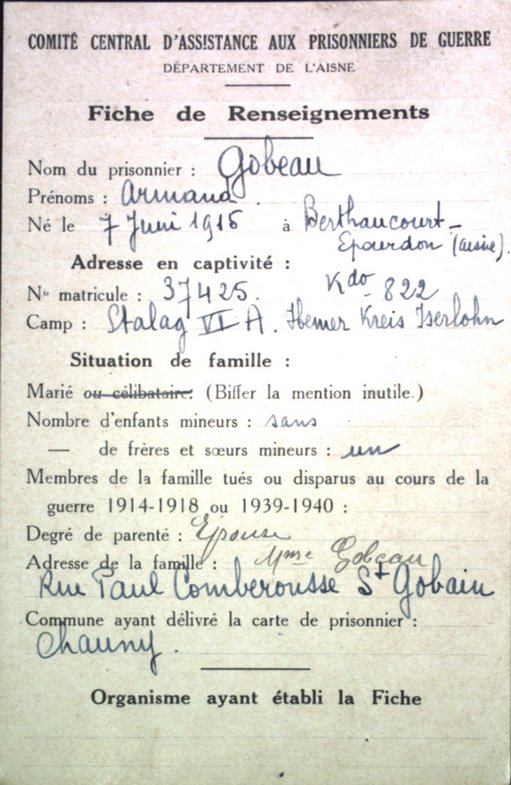 COMITÉ CENTRAL D'ASSISTANCE AUX PRISONNIERS DE GUERRE
DÉPARTEMENT DE L'AISNE
Fiche de Renseignements
Nom du prisonnier : Gobeau
Prénoms : Armand.
Né le 7 Juni 1915 à Berthaucourt-
Epourdon (Aisne).
Adresse en captivité :
N° matricule : 37425. Kdo 822
Camp : Stalag VI A. Hemer Kreis Iserlohn
Situation de famille :
Marié ou célibataire: (Biffer la mention inutile.)
Nombre d'enfants mineurs : sans
— de frères et sœurs mineurs : un
Membres de la famille tués ou disparus au cours de la
guerre 1914-1918 ou 1939-1940 :
Degré de parenté : Epouse
Adresse de la famille : Mme Gobeau
Rue Paul Comberousse St Gobain
Commune ayant délivré la carte de prisonnier :
Chauny.
Organisme ayant établi la Fiche